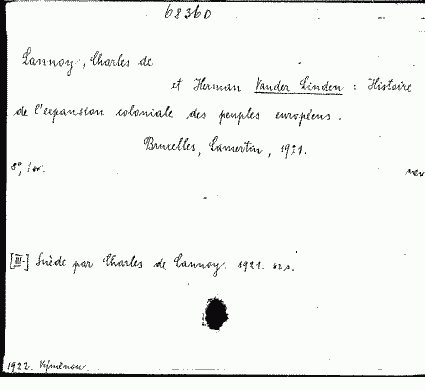 68360
Lannoy, Charles de
et Herman Vander Linden : Histoire
de l'expansion coloniale des peuples européens.
Bruxelles, Lamertin, 1921.
8°, 1 sv.
[III.] Suède par Charles de Lannoy. 1921. s.
1922. Výměnou.